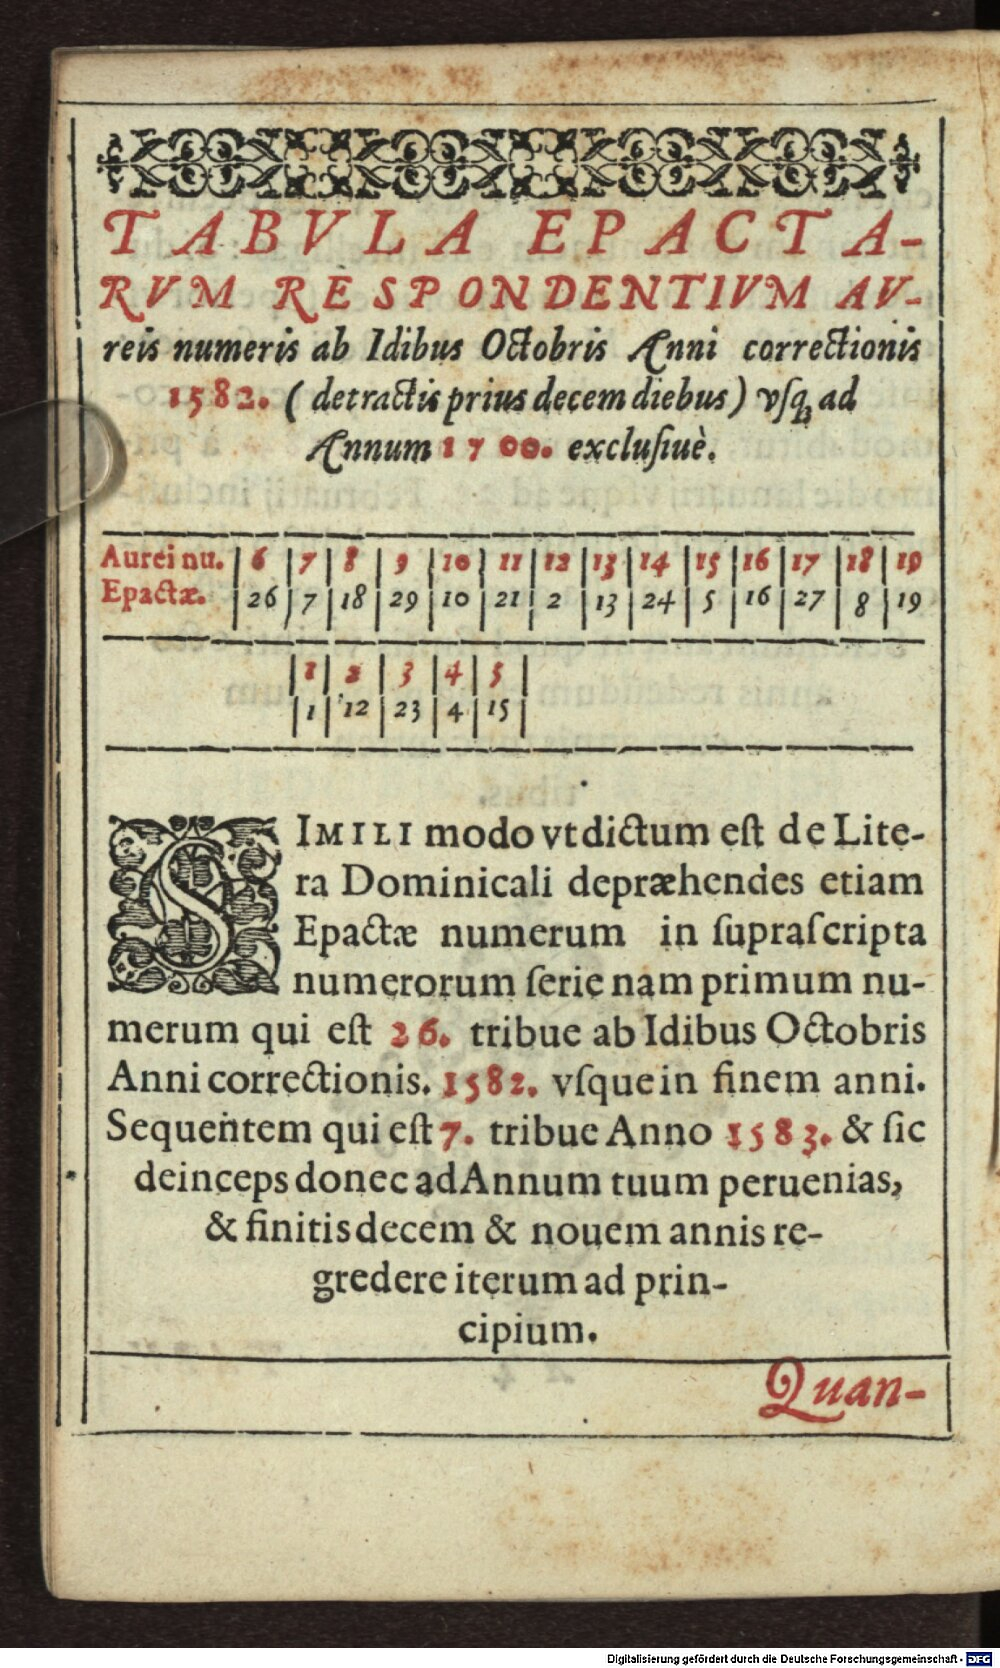 TABVLA EPACTA-
RVM RESPONDENTIVM AV-
reis numeris ab Idibus Octobris Anni correctionis
1582. (detractis prius decem diebus) vſqꝫ ad
Annum 1700. excluſiuè.
Aurei nu. | 6 | 7 | 8 | 9 | 10 | 11 | 12 | 13 | 14 | 15 | 16 | 17 | 18 | 19
Epactæ. | 26 | 7 | 18 | 29 | 10 | 21 | 2 | 13 | 24 | 5 | 16 | 27 | 8 | 19
| 1 | 2 | 3 | 4 | 5 |
| 1 | 12 | 23 | 4 | 15 |
SIMILI modo vt dictum eſt de Lite-
ra Dominicali depræhendes etiam
Epactæ numerum in ſupraſcripta
numerorum ſerie nam primum nu-
merum qui eſt 26. tribue ab Idibus Octobris
Anni correctionis. 1582. vſque in finem anni.
Sequentem qui eſt 7. tribue Anno 1583. & ſic
deinceps donec ad Annum tuum peruenias,
& finitis decem & nouem annis re-
gredere iterum ad prin-
cipium.
Quan-
Digitalisierung gefördert durch die Deutsche Forschungsgemeinschaft - DFG